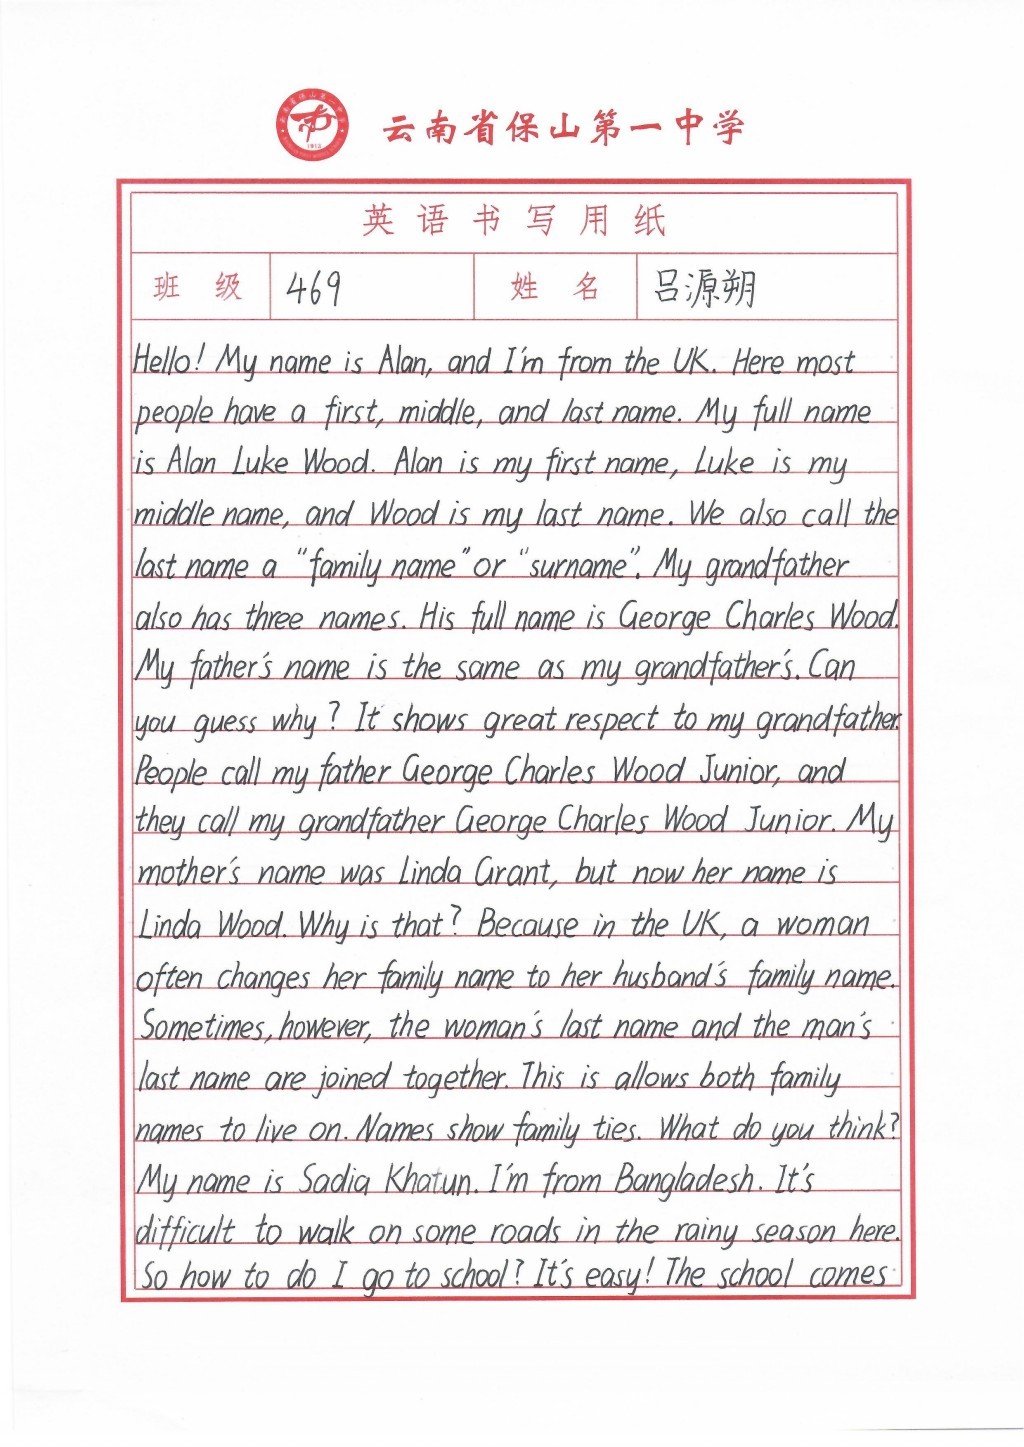 云南省保山第一中学
1912
英语书写用纸
班级 469 姓名 吕源朔
Hello! My name is Alan, and I'm from the UK. Here most
people have a first, middle, and last name. My full name
is Alan Luke Wood. Alan is my first name, Luke is my
middle name, and Wood is my last name. We also call the
last name a "family name" or "surname". My grandfather
also has three names. His full name is George Charles Wood.
My father's name is the same as my grandfather's. Can
you guess why? It shows great respect to my grandfather.
People call my father George Charles Wood Junior, and
they call my grandfather George Charles Wood Junior. My
mother's name was Linda Grant, but now her name is
Linda Wood. Why is that? Because in the UK, a woman
often changes her family name to her husband's family name.
Sometimes, however, the woman's last name and the man's
last name are joined together. This is allows both family
names to live on. Names show family ties. What do you think?
My name is Sadia Khatun. I'm from Bangladesh. It's
difficult to walk on some roads in the rainy season here.
So how to do I go to school? It's easy! The school comes